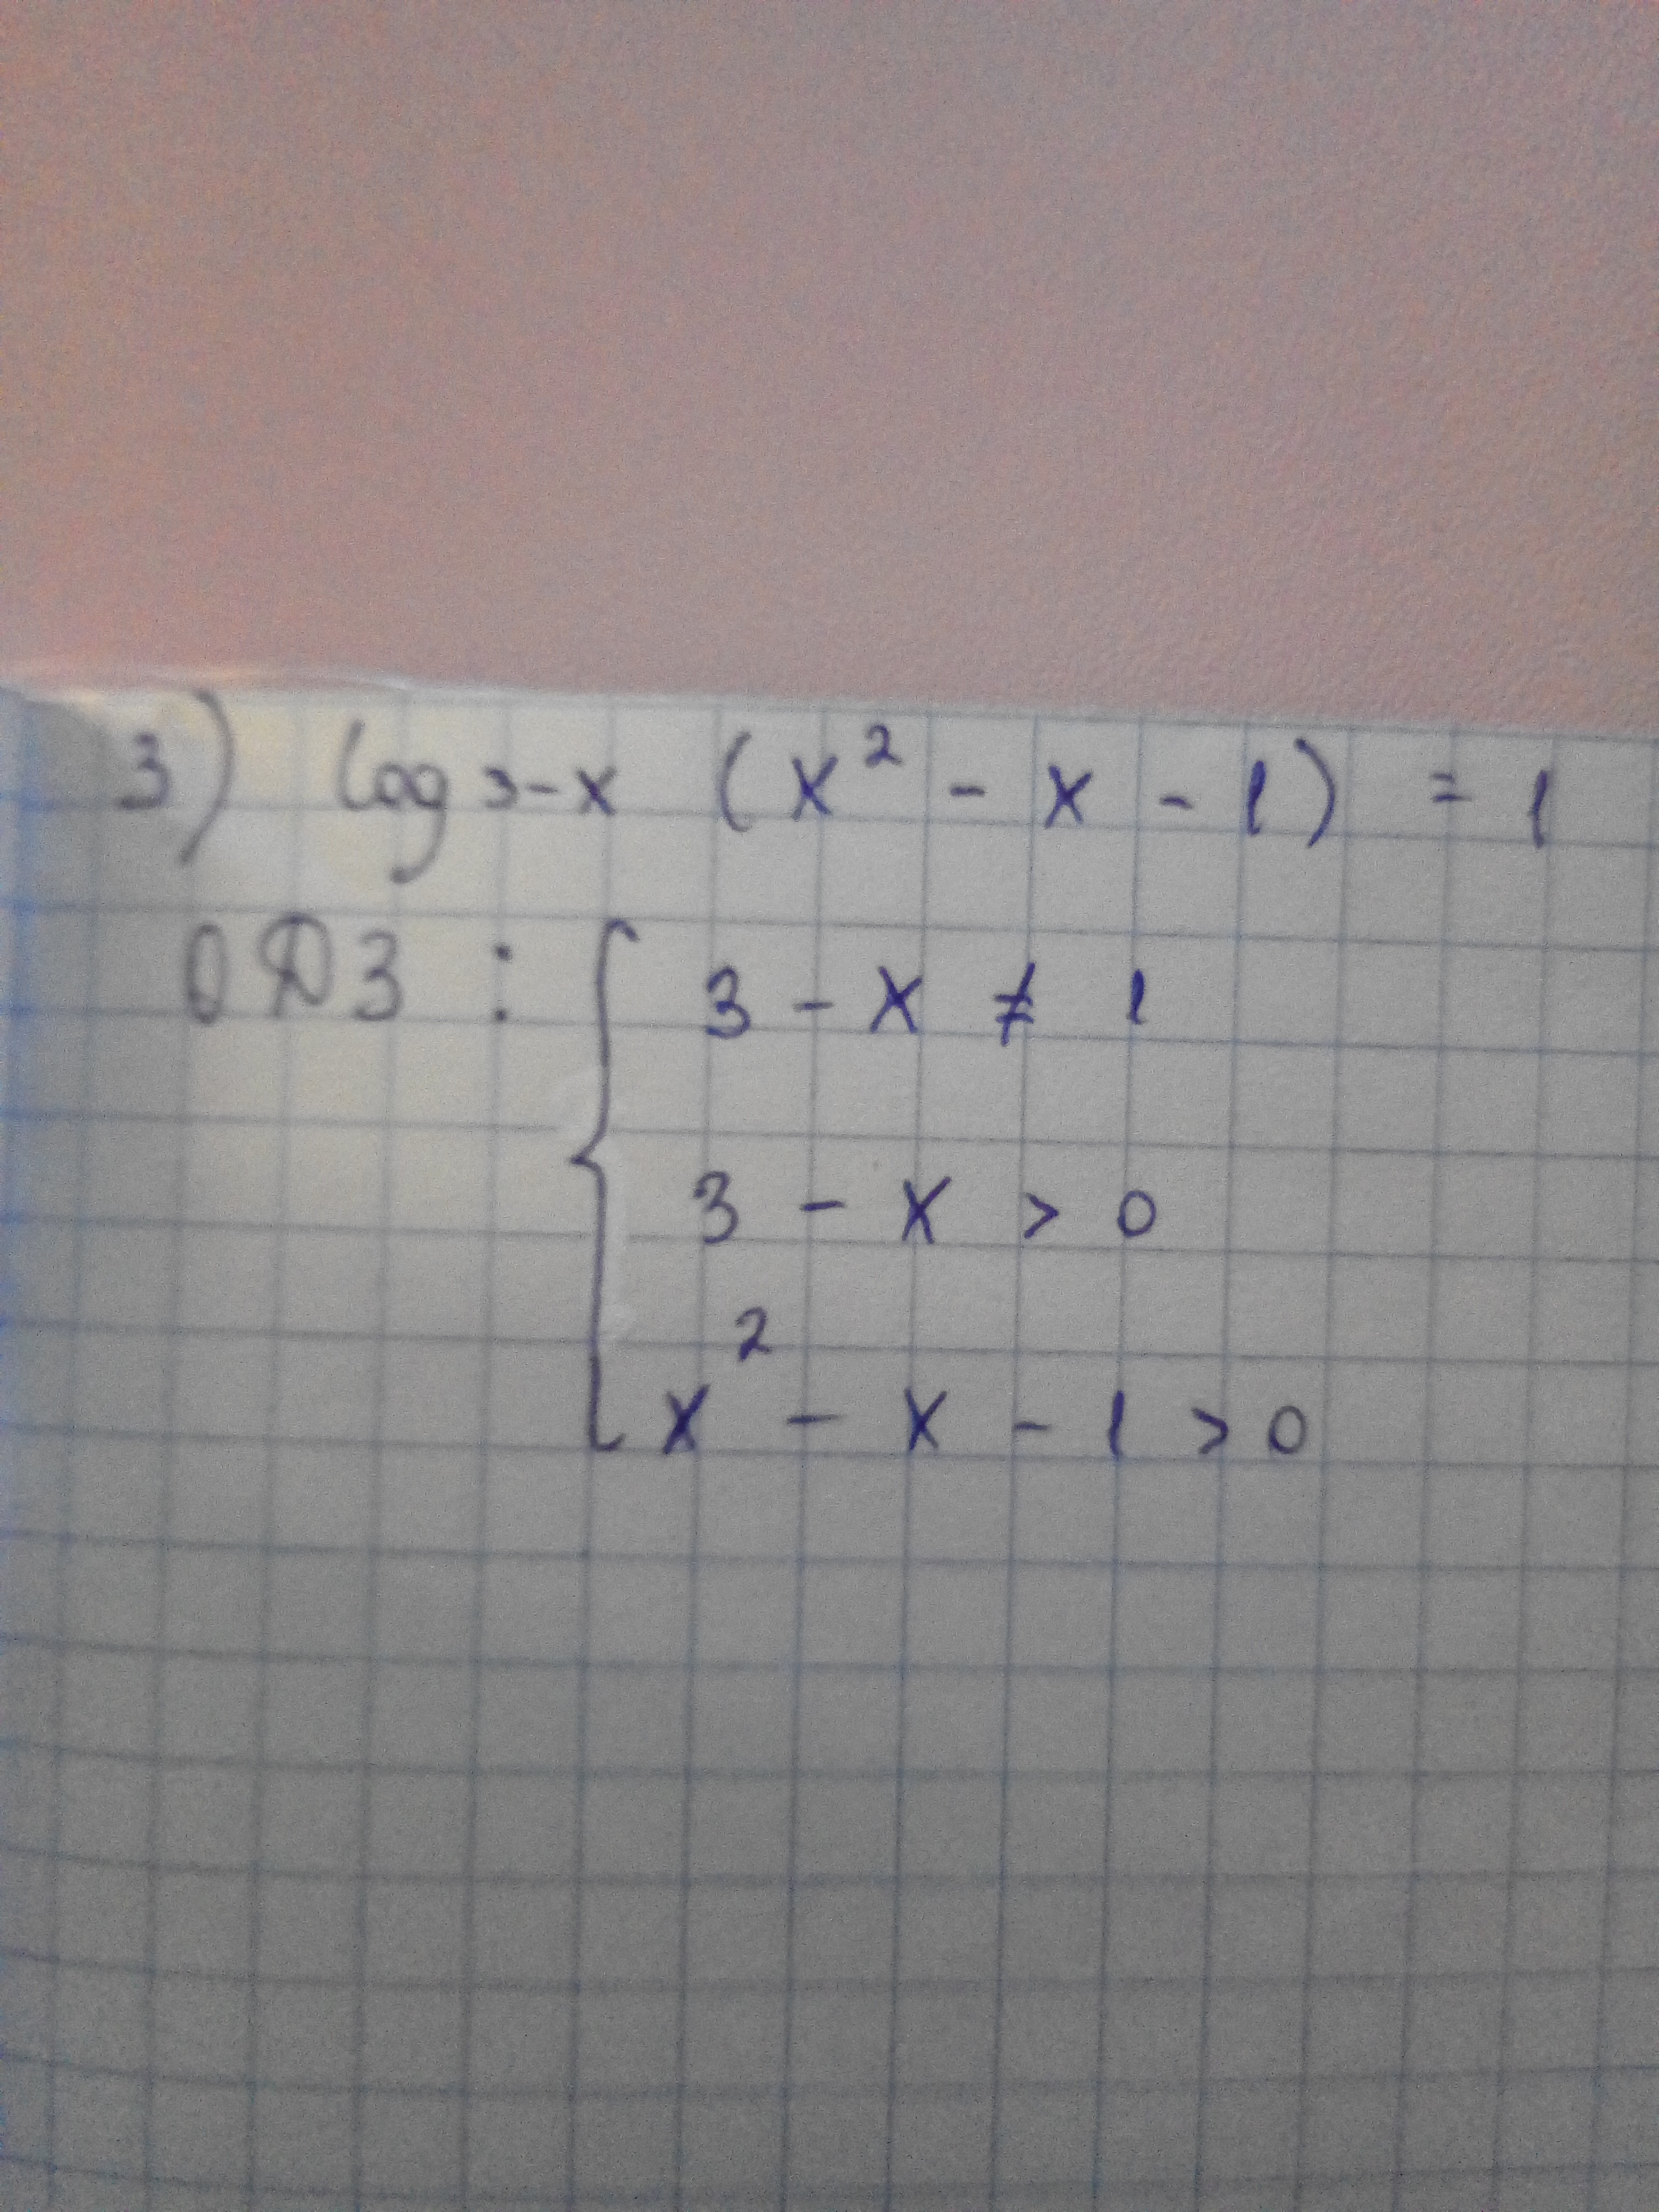 3) log 3-x (x² - x - 1) = 1
ОДЗ : { 3 - x ≠ 1
3 - x > 0
x² - x - 1 > 0